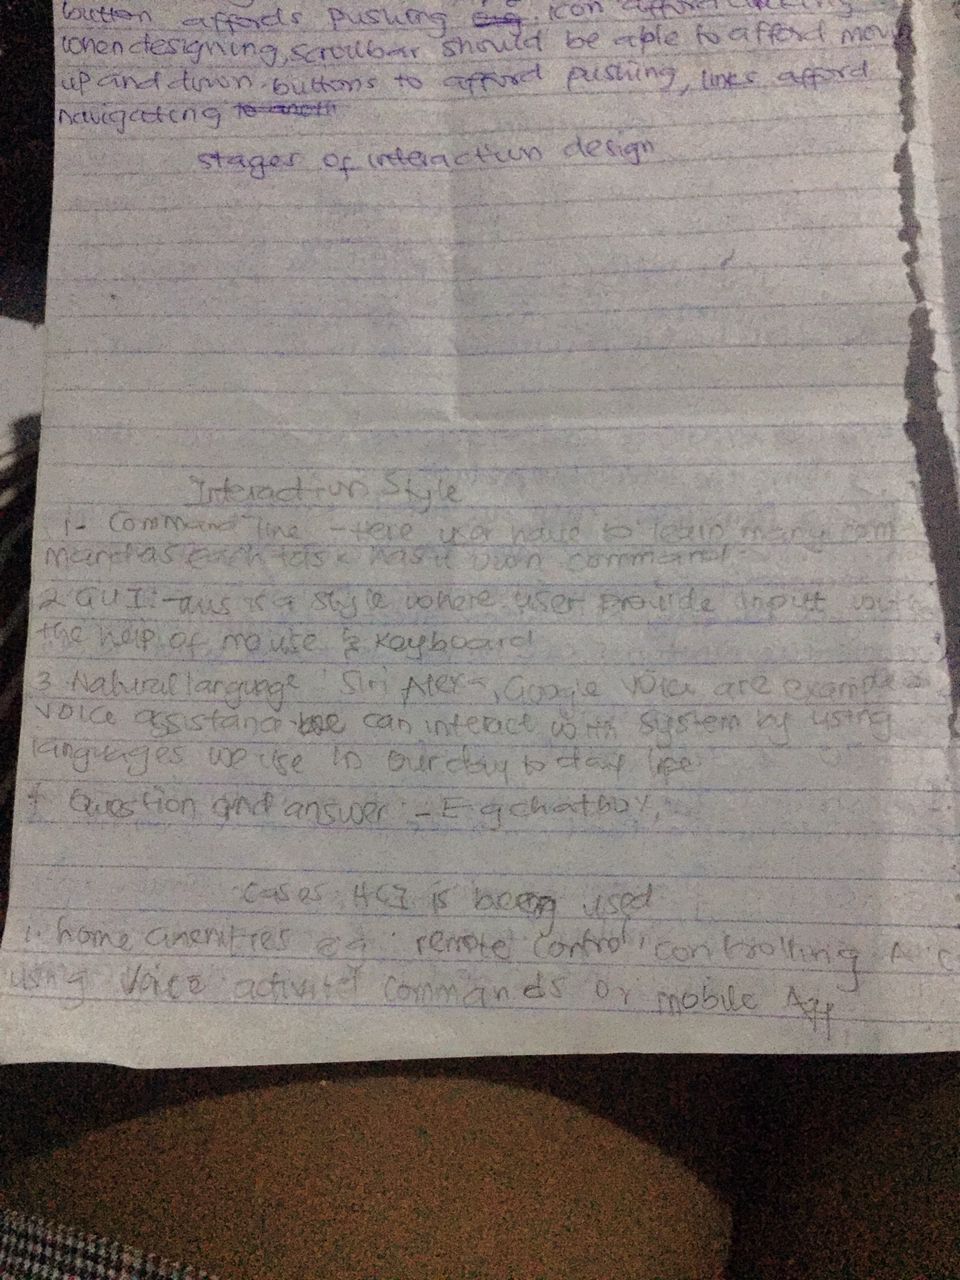 button affords pushing icon
When designing, scrollbar should be able to afford mov
up and down buttons to afford pushing, links afford
navigating
stages of interaction design
Interaction Style
1- Command line - Here user have to learn many com
mand as each task has it own command
2 GUI:- this is a style where user provide input with
the help of mouse & keyboard
3 Natural language Siri Alexa, Google voice are example
voice assistance can interact with system by using
languages we use in our day to day life
Question and answer - Eg chatboy,
Cases HCI is being used
1. home amenities eg remote control, controlling AC
using voice activated commands or mobile App